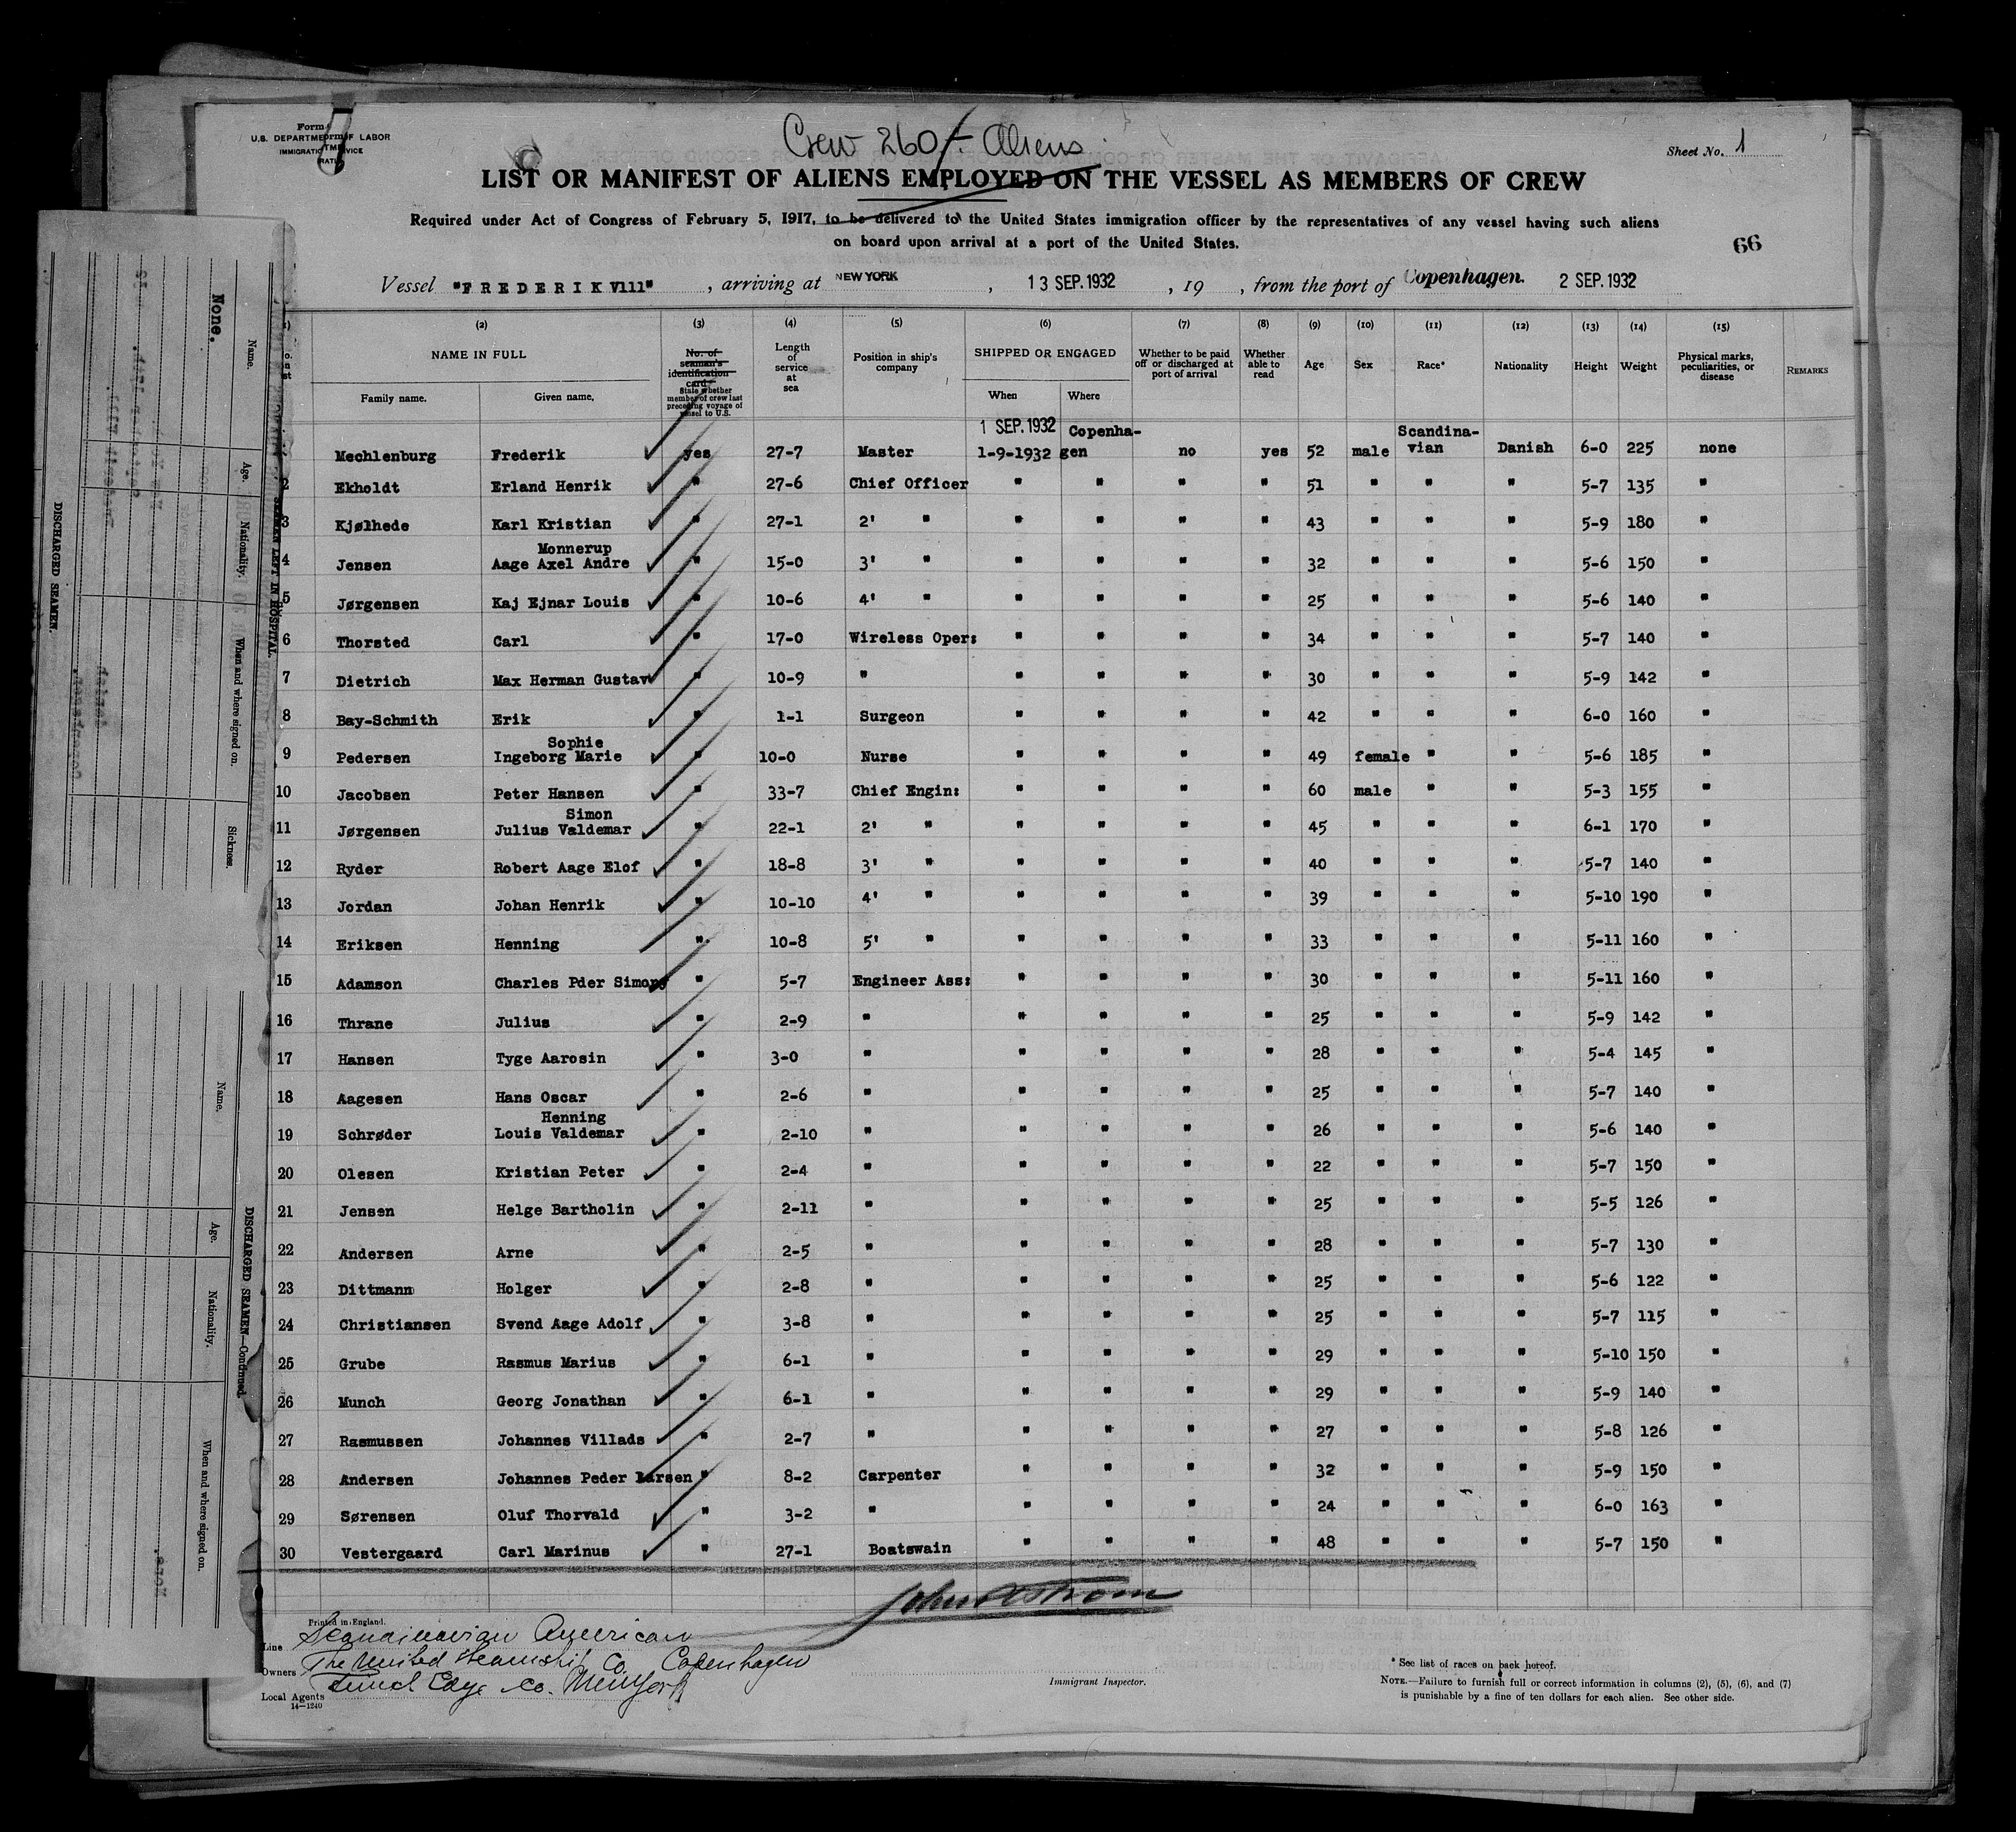 Crew 260 Aliens
Form
U.S. DEPARTMENT OF LABOR
IMMIGRATION SERVICE
Sheet No. 1
LIST OR MANIFEST OF ALIENS EMPLOYED ON THE VESSEL AS MEMBERS OF CREW
Required under Act of Congress of February 5, 1917, to be delivered to the United States immigration officer by the representatives of any vessel having such aliens
on board upon arrival at a port of the United States.
66
Vessel "FREDERIK VIII" , arriving at NEW YORK , 13 SEP. 1932 , 19 , from the port of Copenhagen. 2 SEP. 1932
(2) (3) (4) (5) (6) (7) (8) (9) (10) (11) (12) (13) (14) (15)
NAME IN FULL
Family name. Given name.
No. of seaman's identification card
State whether member of crew last preceding voyage of vessel to U.S.
Length of service at sea
Position in ship's company
SHIPPED OR ENGAGED
When Where
Whether to be paid off or discharged at port of arrival
Whether able to read
Age Sex Race* Nationality Height Weight
Physical marks, peculiarities, or disease
REMARKS
1 SEP. 1932 Copenha- Scandina-
Mechlenburg Frederik yes 27-7 Master 1-9-1932 gen no yes 52 male vian Danish 6-0 225 none
2 Ekholdt Erland Henrik " 27-6 Chief Officer " " " " 51 " " " 5-7 135 "
3 Kjølhede Karl Kristian " 27-1 2' " " " " " 43 " " " 5-9 180 "
Monnerup
4 Jensen Aage Axel Andre " 15-0 3' " " " " " 32 " " " 5-6 150 "
5 Jørgensen Kaj Ejnar Louis " 10-6 4' " " " " " 25 " " " 5-6 140 "
6 Thorsted Carl " 17-0 Wireless Oper: " " " " 34 " " " 5-7 140 "
7 Dietrich Max Herman Gustav " 10-9 " " " " " 30 " " " 5-9 142 "
8 Bay-Schmith Erik " 1-1 Surgeon " " " " 42 " " " 6-0 160 "
Sophie
9 Pedersen Ingeborg Marie " 10-0 Nurse " " " " 49 female " " 5-6 185 "
10 Jacobsen Peter Hansen " 33-7 Chief Engin: " " " " 60 male " " 5-3 155 "
Simon
11 Jørgensen Julius Valdemar " 22-1 2' " " " " " 45 " " " 6-1 170 "
12 Ryder Robert Aage Elof " 18-8 3' " " " " " 40 " " " 5-7 140 "
13 Jordan Johan Henrik " 10-10 4' " " " " " 39 " " " 5-10 190 "
14 Eriksen Henning " 10-8 5' " " " " " 33 " " " 5-11 160 "
15 Adamson Charles Pder Simony " 5-7 Engineer Ass: " " " " 30 " " " 5-11 160 "
16 Thrane Julius " 2-9 " " " " " 25 " " " 5-9 142 "
17 Hansen Tyge Aarosin " 3-0 " " " " " 28 " " " 5-4 145 "
18 Aagesen Hans Oscar " 2-6 " " " " " 25 " " " 5-7 140 "
Henning
19 Schrøder Louis Valdemar " 2-10 " " " " " 26 " " " 5-6 140 "
20 Olesen Kristian Peter " 2-4 " " " " " 22 " " " 5-7 150 "
21 Jensen Helge Bartholin " 2-11 " " " " " 25 " " " 5-5 126 "
22 Andersen Arne " 2-5 " " " " " 28 " " " 5-7 130 "
23 Dittmann Holger " 2-8 " " " " " 25 " " " 5-6 122 "
24 Christiansen Svend Aage Adolf " 3-8 " " " " " 25 " " " 5-7 115 "
25 Grube Rasmus Marius " 6-1 " " " " " 29 " " " 5-10 150 "
26 Munch Georg Jonathan " 6-1 " " " " " 29 " " " 5-9 140 "
27 Rasmussen Johannes Villads " 2-7 " " " " " 27 " " " 5-8 126 "
28 Andersen Johannes Peder Larsen " 8-2 Carpenter " " " " 32 " " " 5-9 150 "
29 Sørensen Oluf Thorvald " 3-2 " " " " " 24 " " " 6-0 163 "
30 Vestergaard Carl Marinus " 27-1 Boatswain " " " " 48 " " " 5-7 150 "
Printed in England.
Line Scandinavian American
Owners The United Steamship Co. Copenhagen
Local Agents Funch Edye Co. New York
14-1240
Immigrant Inspector.
* See list of races on back hereof.
NOTE.—Failure to furnish full or correct information in columns (2), (5), (6), and (7)
is punishable by a fine of ten dollars for each alien. See other side.
None.
Name. Age. Nationality. When and where signed on. Sickness.
SEAMEN LEFT IN HOSPITAL.
DISCHARGED SEAMEN.
Name. Age. Nationality. When and where signed on.
DISCHARGED SEAMEN—Continued.